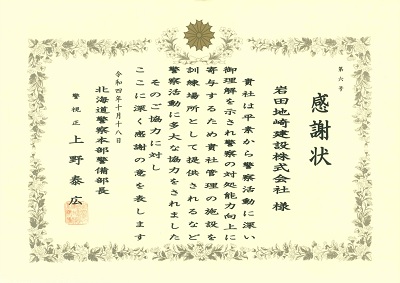 第六号
感謝状
岩田地崎建設株式会社 様
貴社は平素から警察活動に深い
御理解を示され警察の対処能力向上に
寄与するため貴社管理の施設を
訓練場所として提供されるなど
警察活動に多大な協力をされました
そのご協力に対し
ここに深く感謝の意を表します
令和四年十月十八日
北海道警察本部警備部長
警視正 上野泰広